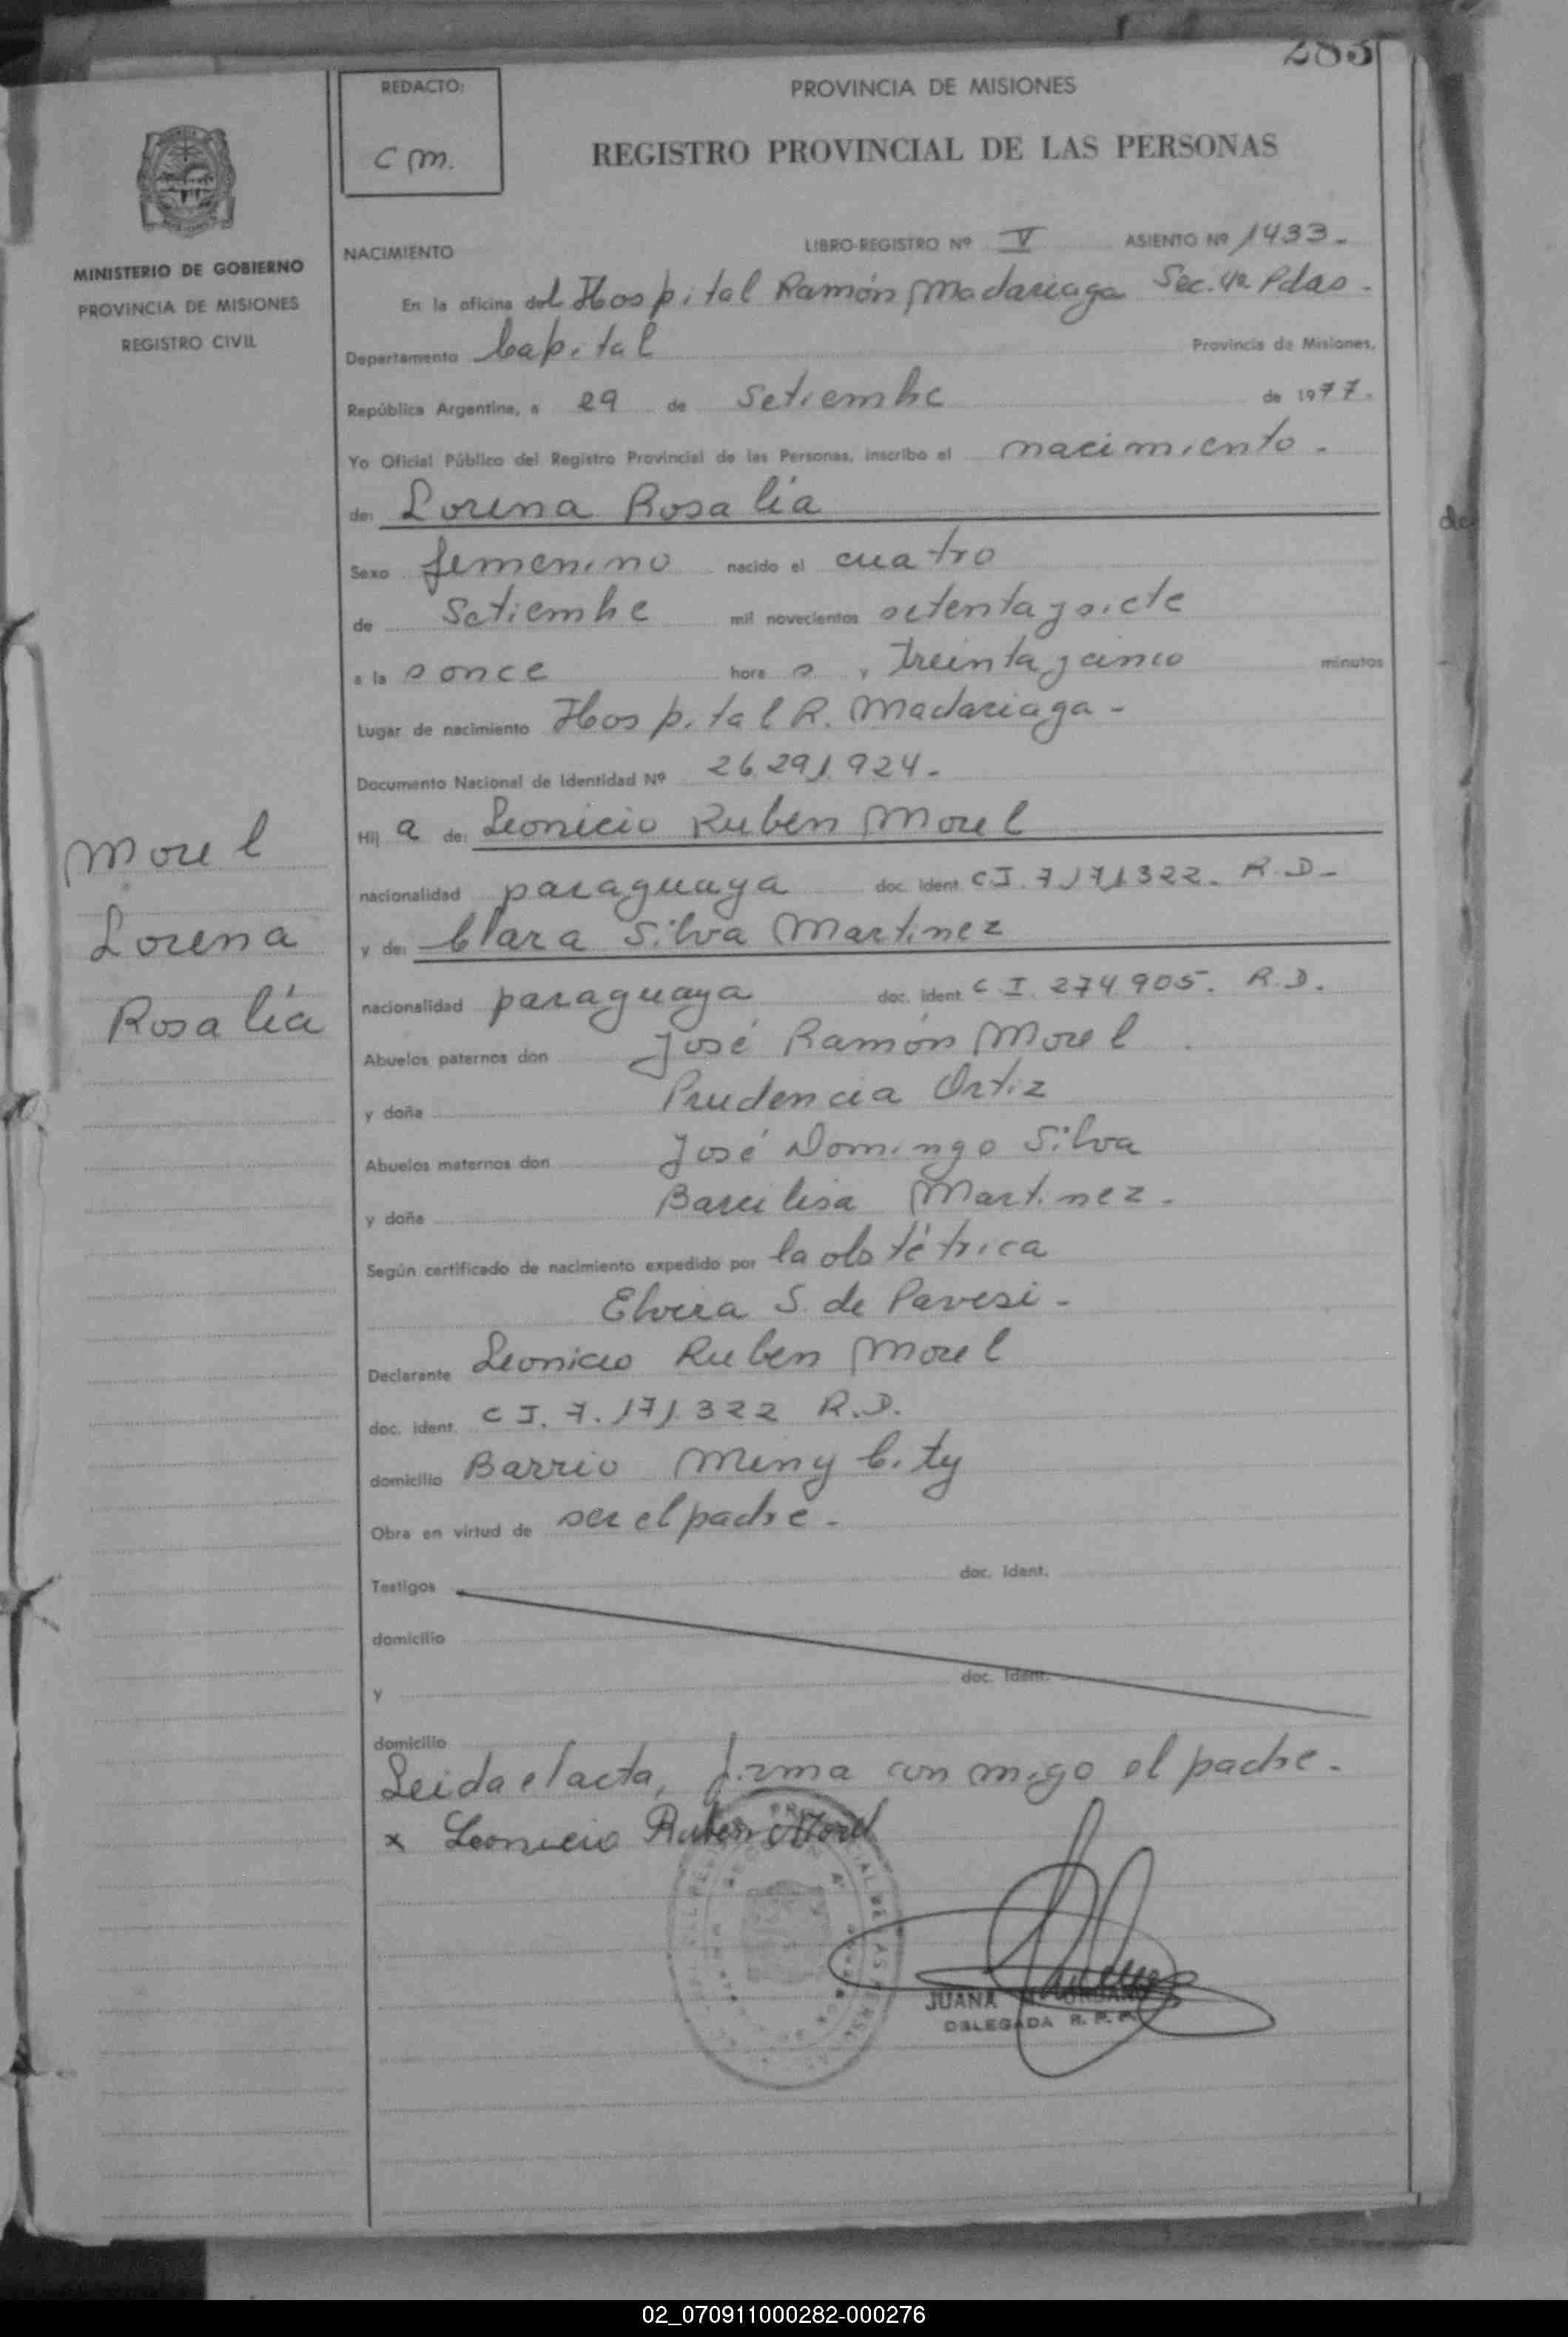 283
REDACTO:
C M.
PROVINCIA DE MISIONES
REGISTRO PROVINCIAL DE LAS PERSONAS
MINISTERIO DE GOBIERNO
PROVINCIA DE MISIONES
REGISTRO CIVIL
NACIMIENTO LIBRO-REGISTRO Nº V ASIENTO Nº 1433.-
En la oficina del Hospital Ramón Madariaga Sec. 4a. Pdas.
Departamento Capital Provincia de Misiones,
República Argentina, a 29 de Setiembre de 1977.
Yo Oficial Público del Registro Provincial de las Personas, inscribo el nacimiento.-
de: Lorena Rosalía
Sexo femenino nacido el cuatro
de Setiembre mil novecientos setenta y siete
a la s once hora s y treinta y cinco minutos
Lugar de nacimiento Hospital R. Madariaga -
Documento Nacional de Identidad Nº 26.291.924.-
Hij a de: Leonicio Ruben Morel
nacionalidad paraguaya doc. ident. C I. 7.171.322. R.D-
y de: Clara Silva Martinez
nacionalidad paraguaya doc. ident. C. I. 274.905. R.D.
Abuelos paternos don José Ramón Morel
y doña Prudencia Ortiz
Abuelos maternos don José Domingo Silva
y doña Barcilisa Martinez.-
Según certificado de nacimiento expedido por la obstétrica
Elvira S. de Pavesi-
Declarante Leonicio Ruben Morel
doc. ident. C I. 7.171.322 R.D.
domicilio Barrio Miny City
Obra en virtud de ser el padre.-
Testigos doc. ident.
domicilio
y doc. ident.
domicilio
Leida el acta, firma con migo el padre.-
x Leonicio Ruben Morel
JUANA
DELEGADA R. P. P.
Morel
Lorena
Rosalía
de
02_070911000282-000276